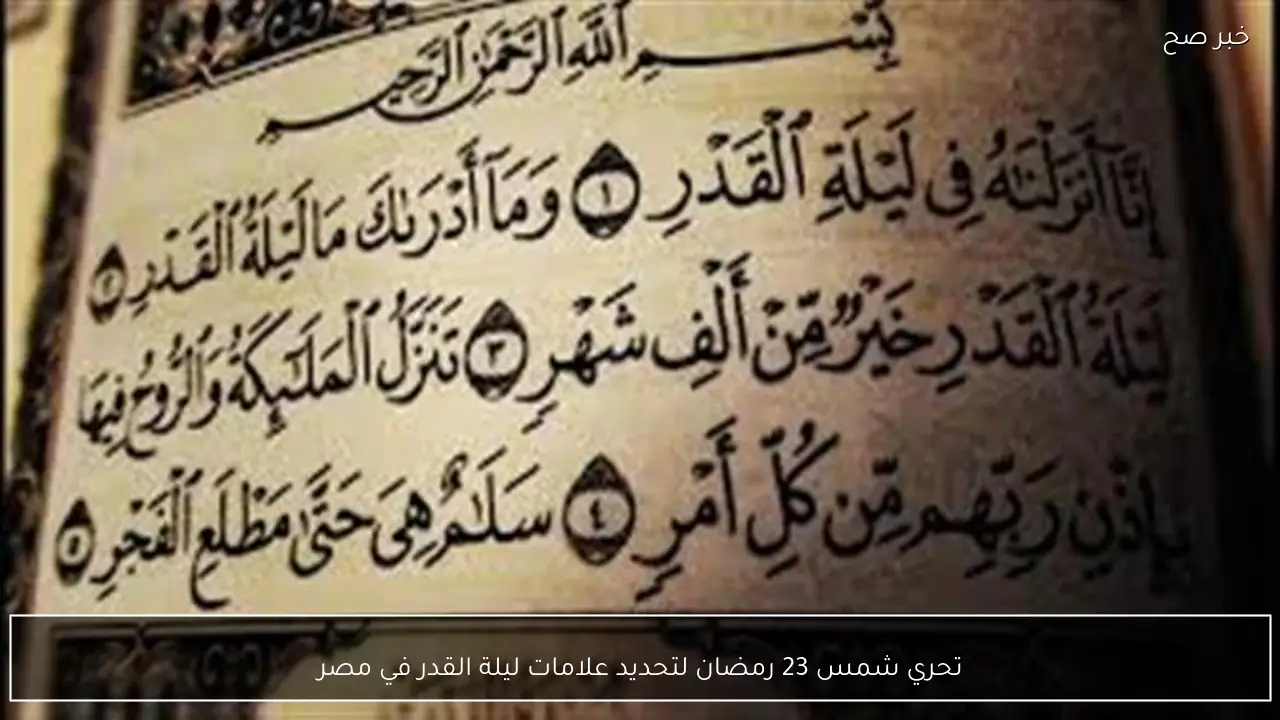 خبر صح
بِسْمِ ٱللَّهِ ٱلرَّحْمَٰنِ ٱلرَّحِيمِ
إِنَّآ أَنزَلْنَٰهُ فِى لَيْلَةِ ٱلْقَدْرِ ١ وَمَآ أَدْرَىٰكَ مَا لَيْلَةُ ٱلْقَدْرِ ٢
لَيْلَةُ ٱلْقَدْرِ خَيْرٌ مِّنْ أَلْفِ شَهْرٍ ٣ تَنَزَّلُ ٱلْمَلَٰٓئِكَةُ وَٱلرُّوحُ فِيهَا
بِإِذْنِ رَبِّهِم مِّن كُلِّ أَمْرٍ ٤ سَلَٰمٌ هِىَ حَتَّىٰ مَطْلَعِ ٱلْفَجْرِ ٥
تحري شمس 23 رمضان لتحديد علامات ليلة القدر في مصر